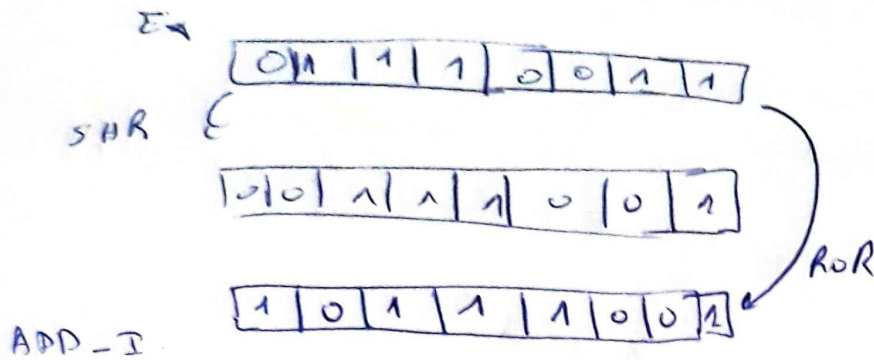 Ex
0 1 1 1 0 0 1 1
SHR
0 0 1 1 1 0 0 1
ROR
1 0 1 1 1 0 0 1
ADD-I